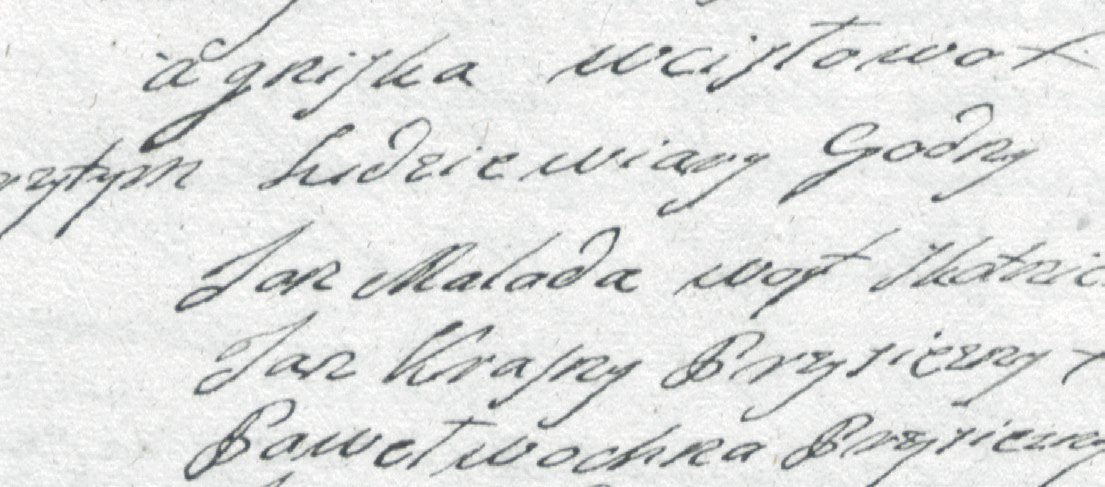 agniska wcisłowa x
przytym ludzie wiary Godny
Jan Malada woyt
Jan Krasny Przysiezny x
Paweł wochna Przysiezny